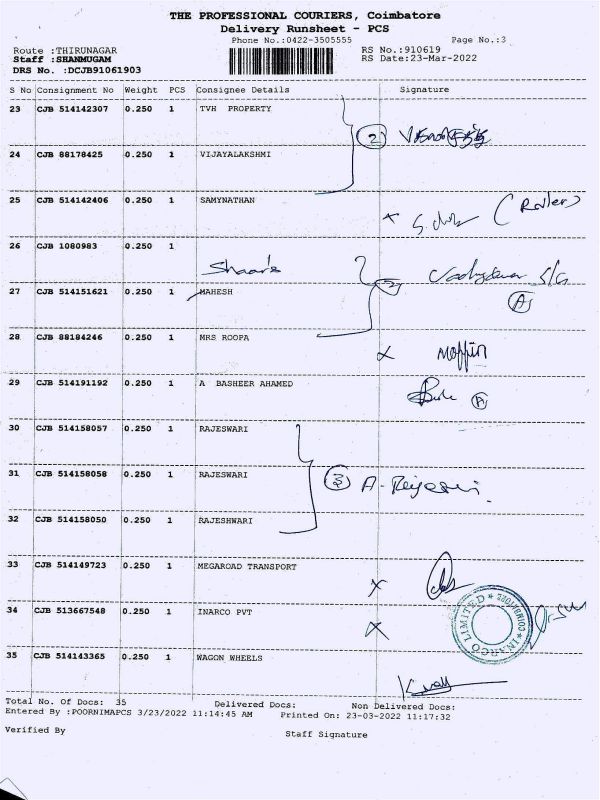 THE PROFESSIONAL COURIERS, Coimbatore
Delivery Runsheet - PCS
Phone No.:0422-3505555
Page No.:3
Route :THIRUNAGAR
RS No.:910619
Staff :SHANMUGAM
RS Date:23-Mar-2022
DRS No. :DCJB91061903
S No Consignment No Weight PCS Consignee Details Signature
23 CJB 514142307 0.250 1 TVH PROPERTY
2
24 CJB 88178425 0.250 1 VIJAYALAKSHMI
25 CJB 514142406 0.250 1 SAMYNATHAN
26 CJB 1080983 0.250 1
S/G
27 CJB 514151621 0.250 1 MAHESH
A
28 CJB 88184246 0.250 1 MRS ROOPA
29 CJB 514191192 0.250 1 A BASHEER AHAMED
30 CJB 514158057 0.250 1 RAJESWARI
31 CJB 514158058 0.250 1 RAJESWARI
3
32 CJB 514158050 0.250 1 RAJESHWARI
33 CJB 514149723 0.250 1 MEGAROAD TRANSPORT
34 CJB 513667548 0.250 1 INARCO PVT
INARCO LIMITED * COIMBATORE *
35 CJB 514143365 0.250 1 WAGON WHEELS
Total No. Of Docs: 35 Delivered Docs: Non Delivered Docs:
Entered By :POORNIMAPCS 3/23/2022 11:14:45 AM Printed On: 23-03-2022 11:17:32
Verified By
Staff Signature